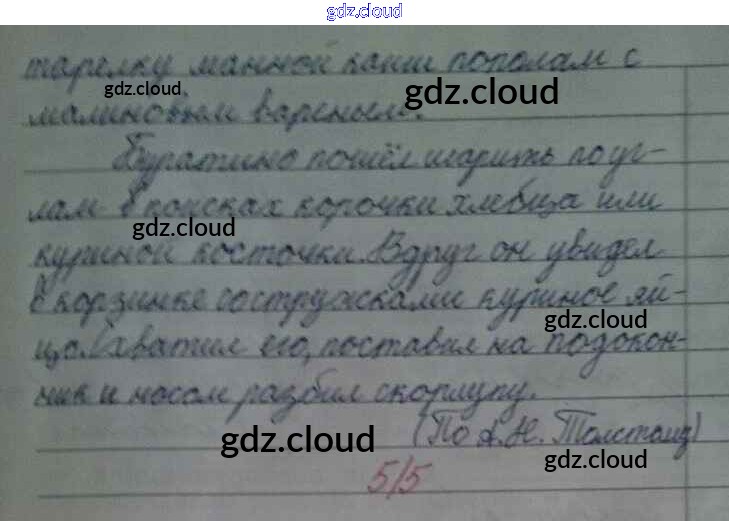 gdz.cloud
тарелку манной каши пополам с
gdz.cloud
gdz.cloud
малиновым вареньем.
Буратино пошёл шарить по уг-
лам в поисках корочки хлебца или
gdz.cloud
куриной косточки. Вдруг он увидел
в корзинке со стружками куриное яй-
gdz.cloud
цо. Схватил его, поставил на подокон-
ник и носом разбил скорлупу.
(По А. Н. Толстому)
gdz.cloud
gdz.cloud
5/5